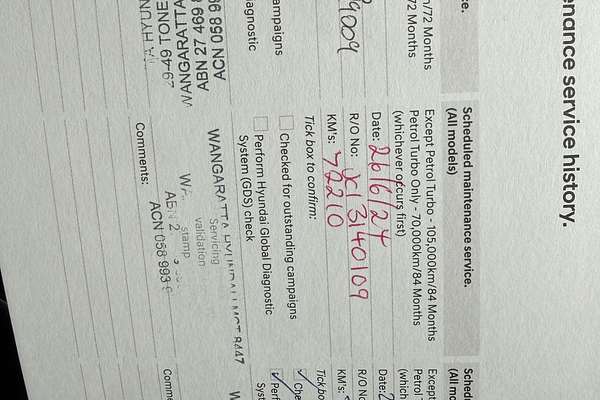 enance service history.
ce.
n/72 Months
72 Months
9009
ampaigns
agnostic
ACN 058 99
ABN 27 469
WANGARATTA
29-49 TONE
Scheduled maintenance service.
(All models)
Except Petrol Turbo - 105,000km/84 Months
Petrol Turbo Only - 70,000km/84 Months
(whichever occurs first)
Date: 26/6/24
R/O No: X1 3140109
KM's: 72210
Tick box to confirm:
Checked for outstanding campaigns
Perform Hyundai Global Diagnostic
System (GDS) check
WANGARATTA HYUNDAI LMCT 8447
Servicing
validation
stamp
ACN 058 993
Comments:
Schedu
(All mo
Except
Petrol
(which
Date: 2
R/O No
KM's:
Tick bo
Che
Perf
Syst
W
Comm